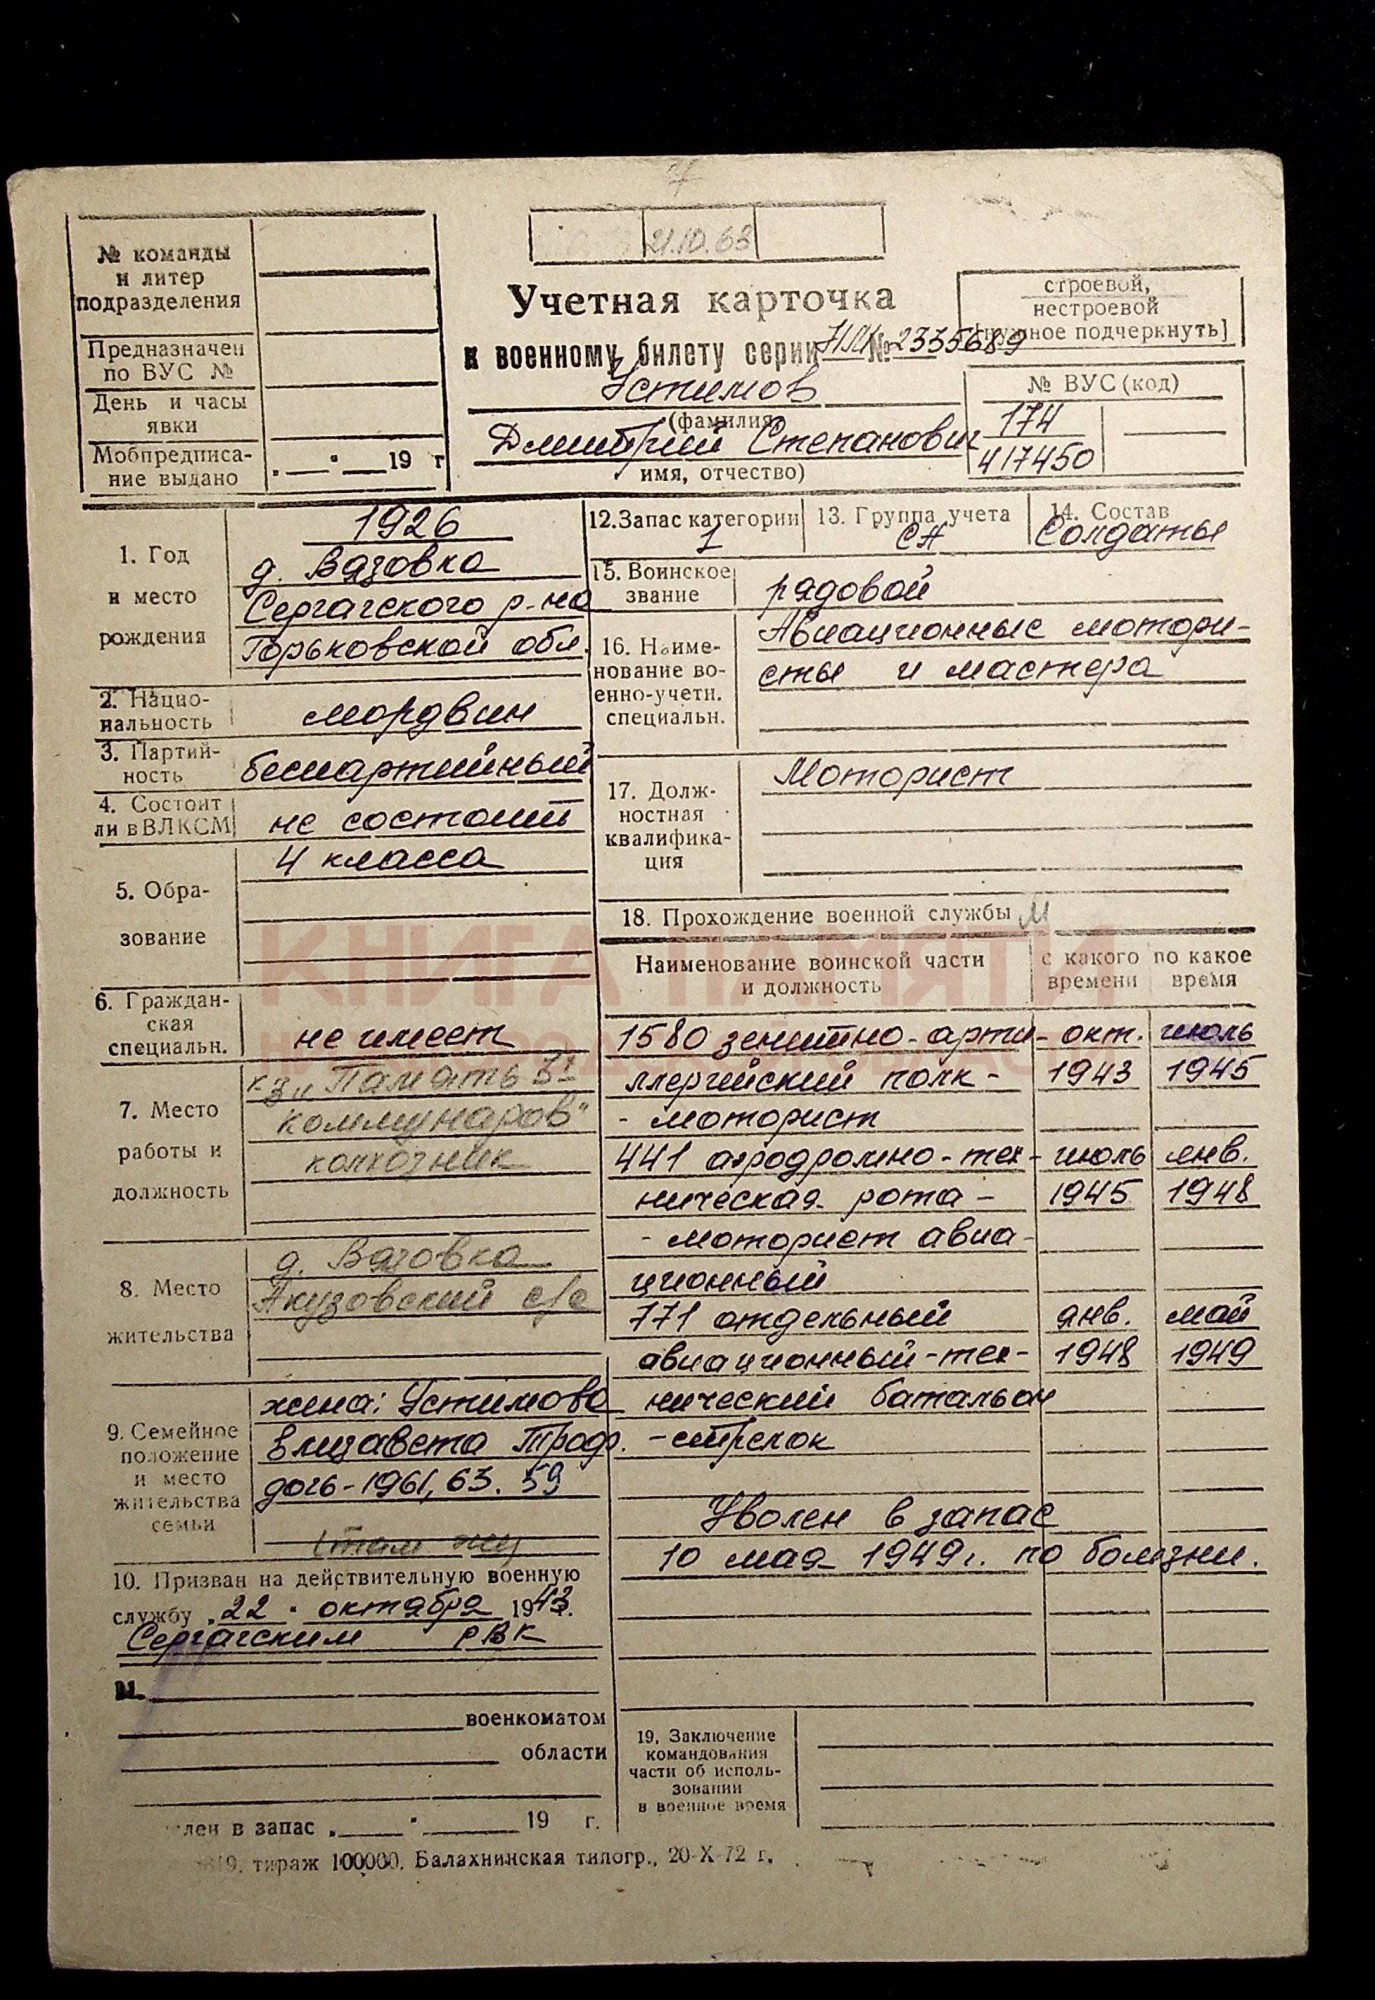 № команды
и литер
подразделения
Предназначен
по ВУС №
День и часы
явки
Мобпредписа-
ние выдано „ — " — 19 г
21.10.63
Учетная карточка
к военному билету серии НМ № 2335689
строевой,
нестроевой
нужное подчеркнуть]
Устимов
(фамилия,
Дмитрий Степанович
имя, отчество)
№ ВУС (код)
174
417450
1. Год
и место
рождения
1926
д. Вязовка
Сергачского р-на
Горьковской обл.
2. Нацио-
нальность
мордвин
3. Партий-
ность
беспартийный
4. Состоит
ли в ВЛКСМ
не состоит
5. Обра-
зование
4 класса
6. Граждан-
ская
специальн.
не имеет
7. Место
работы и
должность
к-з „Память 3х
коммунаров"
колхозник
8. Место
жительства
д. Вязовка
Акузовский с/с
9. Семейное
положение
и место
жительства
семьи
жена: Устимова
Елизавета Троф.
дочь-1961, 63. 59
(там же)
10. Призван на действительную военную
службу „22" октября 1943 г.
Сергачским РВК
11.
военкоматом
области
лен в запас „ " 19 г.
12. Запас категории
1
13. Группа учета
СА
14. Состав
Солдаты
15. Воинское
звание
рядовой
16. Наиме-
нование во-
енно-учетн.
специальн.
Авиационные мотори-
сты и мастера
17. Долж-
ностная
квалифика-
ция
Моторист
18. Прохождение военной службы М
Наименование воинской части
и должность
с какого
времени
по какое
время
1580 зенитно-арти- окт. июль
ллерийский полк - 1943 1945
- моторист
441 аэродромно-тех- июль янв.
ническая рота - 1945 1948
- моторист авиа-
ционный
771 отдельный янв. май
авиационный-тех- 1948 1949
нический батальон
- стрелок
Уволен в запас
10 мая 1949г. по болезни.
19. Заключение
командования
части об исполь-
зовании
в военное время
тираж 100000. Балахнинская типогр., 20-X-72 г.
КНИГА ПАМЯТИ